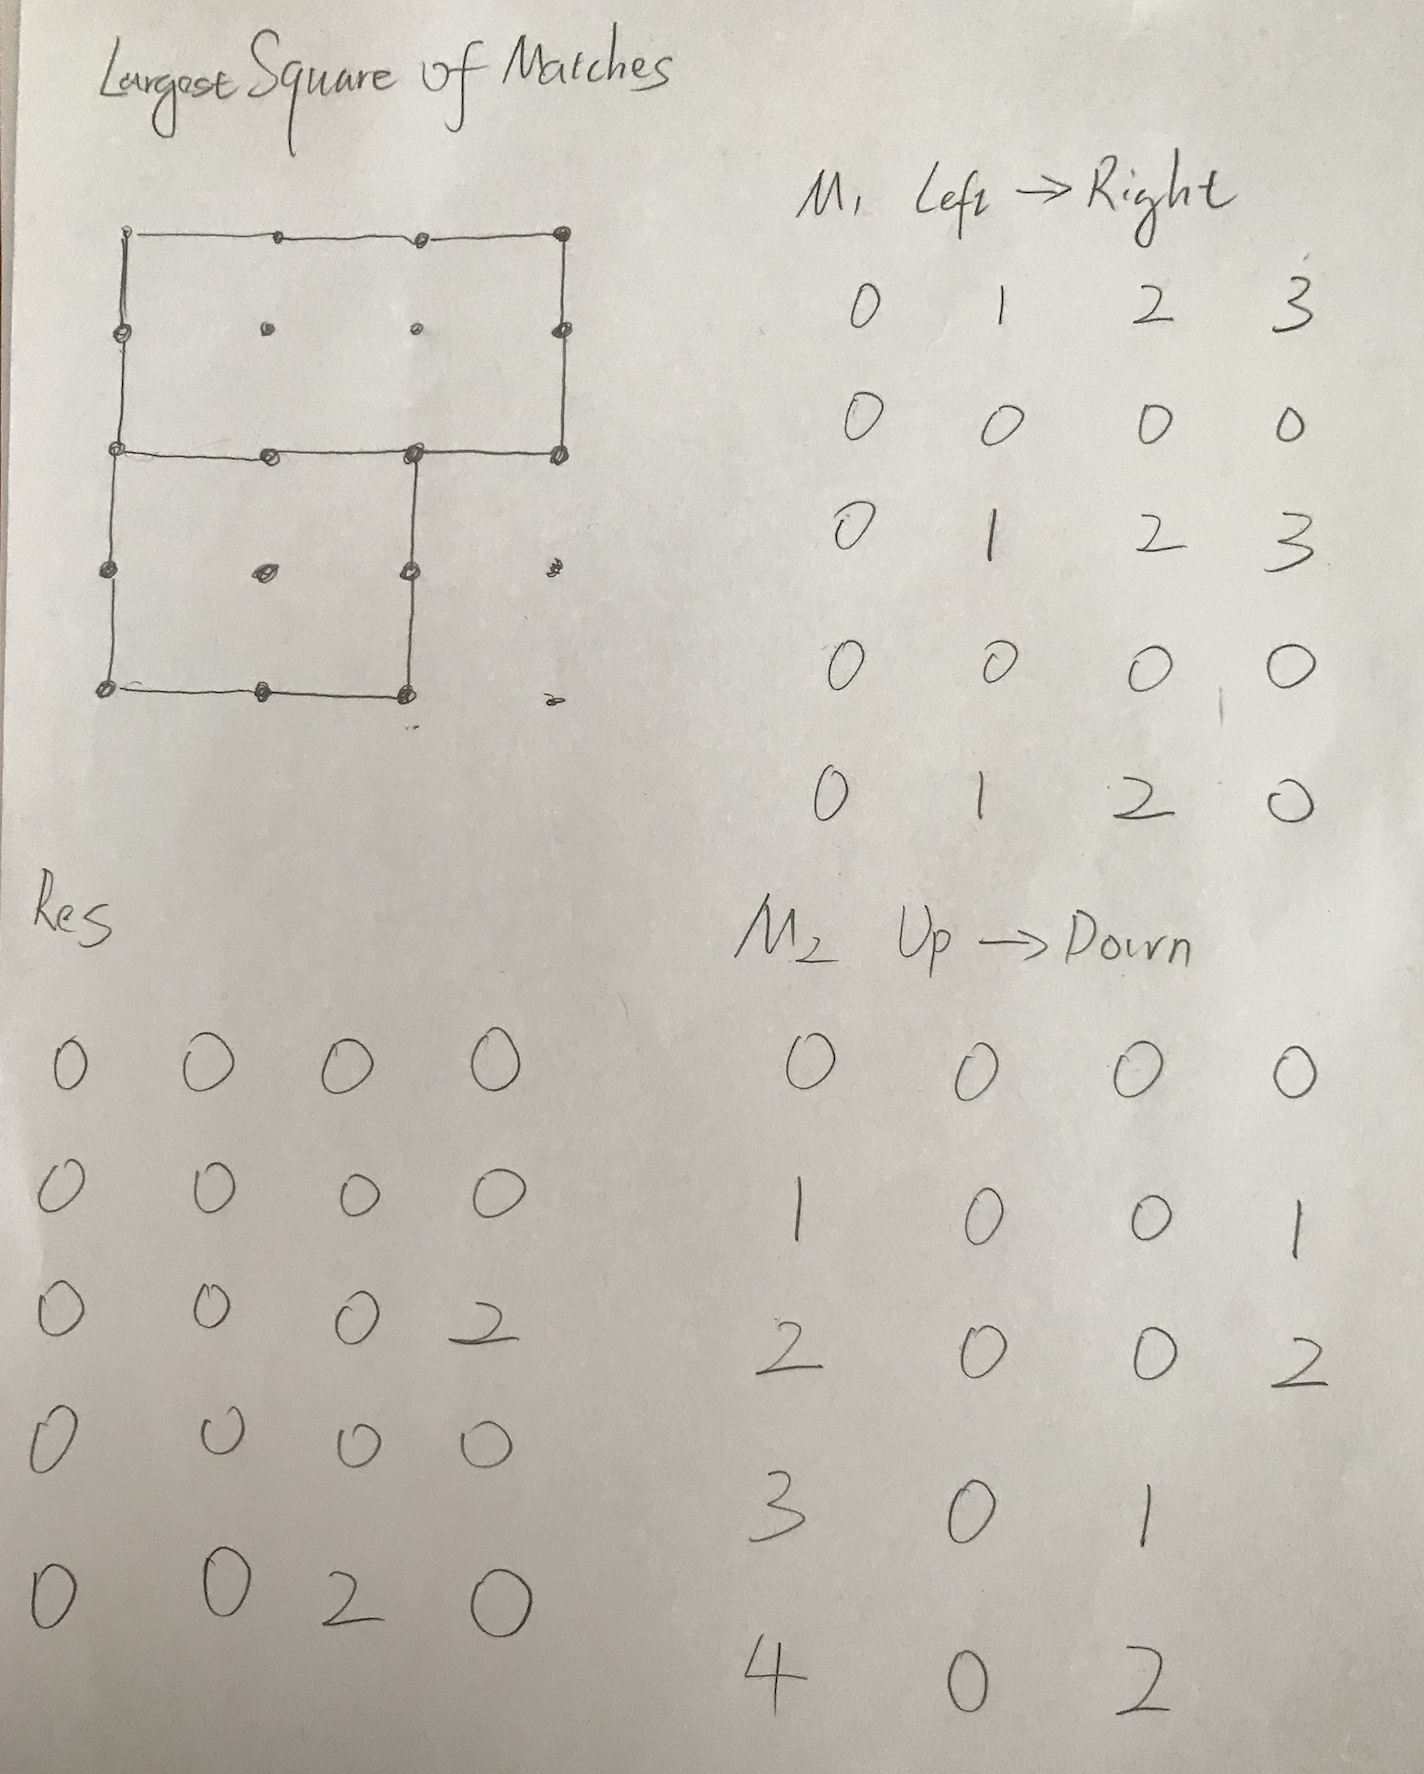 Largest Square of Matches
M1 Left → Right
0 1 2 3
0 0 0 0
0 1 2 3
0 0 0 0
0 1 2 0
Res
0 0 0 0
0 0 0 0
0 0 0 2
0 0 0 0
0 0 2 0
M2 Up → Down
0 0 0 0
1 0 0 1
2 0 0 2
3 0 1
4 0 2